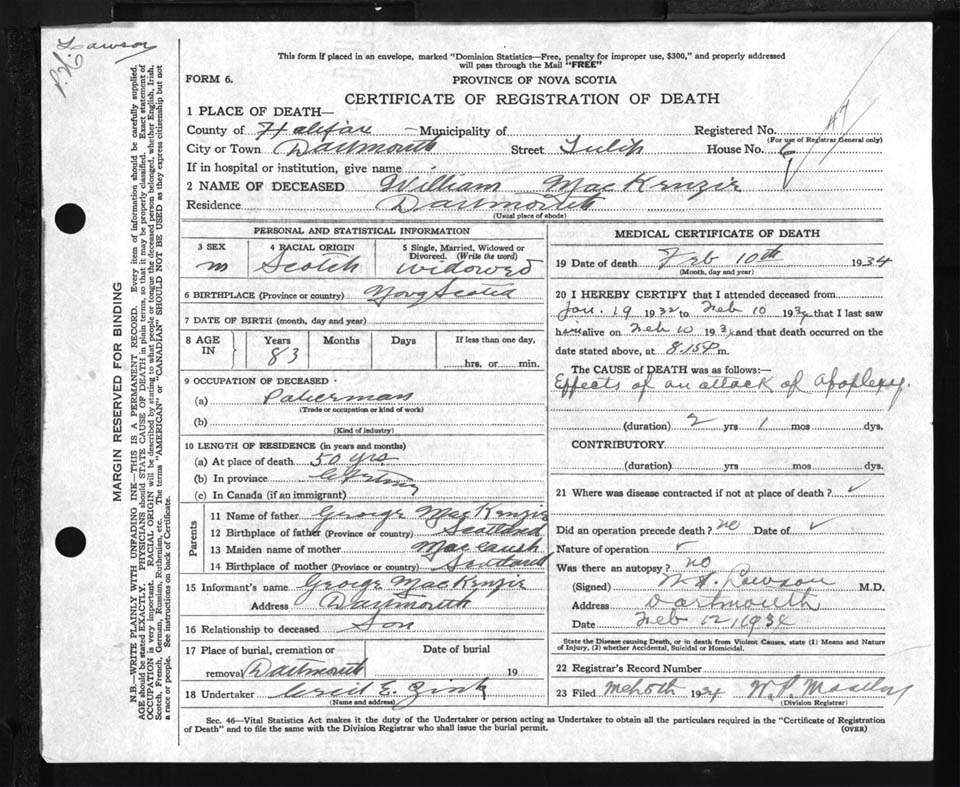 Lawson
This form if placed in an envelope, marked "Dominion Statistics—Free, penalty for improper use, $300," and properly addressed
will pass through the Mail "FREE"
FORM 6.
PROVINCE OF NOVA SCOTIA
CERTIFICATE OF REGISTRATION OF DEATH
1 PLACE OF DEATH—
County of Halifax —Municipality of Registered No.
(For use of Registrar General only)
City or Town Dartmouth Street Tulip House No. 6
If in hospital or institution, give name
2 NAME OF DECEASED William MacKenzie
Residence Dartmouth
(Usual place of abode)
MARGIN RESERVED FOR BINDING
N.B.—WRITE PLAINLY WITH UNFADING INK—THIS IS A PERMANENT RECORD. Every item of information should be carefully supplied.
AGE should be stated EXACTLY. PHYSICIANS should STATE CAUSE OF DEATH in plain terms, so that it may be properly classified. Exact statement of
OCCUPATION is very important. RACIAL ORIGIN will be described by stating to what people or tongue the deceased person belonged, whether English, Irish,
Scotch, French, German, Russian, Ruthenian, etc. The terms "AMERICAN" or "CANADIAN" SHOULD NOT BE USED as they express citizenship but not
a race or people. See instructions on back of Certificate.
PERSONAL AND STATISTICAL INFORMATION
3 SEX 4 RACIAL ORIGIN 5 Single, Married, Widowed or
Divorced. (Write the word)
m Scotch widowed
6 BIRTHPLACE (Province or country) Nova Scotia
7 DATE OF BIRTH (month, day and year)
8 AGE IN Years Months Days If less than one day,
83 hrs. or min.
9 OCCUPATION OF DECEASED
(a)
(Trade or occupation or kind of work)
(b)
(Kind of industry)
10 LENGTH OF RESIDENCE (in years and months)
(a) At place of death 50 yrs
(b) In province
(c) In Canada (if an immigrant)
Parents
11 Name of father George MacKenzie
12 Birthplace of father (Province or country) Scotland
13 Maiden name of mother
14 Birthplace of mother (Province or country) Scotland
15 Informant's name George MacKenzie
Address Dartmouth
16 Relationship to deceased Son
17 Place of burial, cremation or Date of burial
removal Dartmouth 19
18 Undertaker Cecil E. Zink
(Name and address)
MEDICAL CERTIFICATE OF DEATH
19 Date of death Feb 10th 1934
(Month, day and year)
20 I HEREBY CERTIFY that I attended deceased from
Jan. 19 1932 to Feb 10 1934 that I last saw
him alive on Feb 10 1934 and that death occurred on
date stated above, at 8.15 P m.
The CAUSE OF DEATH was as follows:
Effects of an attack of Apoplexy.
(duration) 2 yrs 1 mos dys.
CONTRIBUTORY
(duration) yrs mos dys.
21 Where was disease contracted if not at place of death?
Did an operation precede death? no Date of
Nature of operation
Was there an autopsy? no
(Signed) Lawson M.D.
Address Dartmouth
Date Feb 12, 1934
State the Disease causing Death, or in death from Violent Causes, state (1) Means and Nature
of Injury, (2) whether Accidental, Suicidal or Homicidal.
22 Registrar's Record Number
23 Filed 1934
(Division Registrar)
Sec. 46—Vital Statistics Act makes it the duty of the Undertaker or person acting as Undertaker to obtain all the particulars required in the "Certificate of Registration
of Death" and to file the same with the Division Registrar who shall issue the burial permit. (OVER)